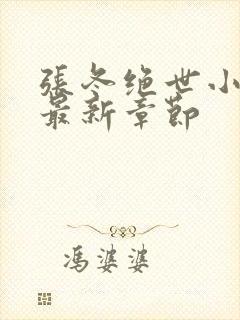 張冬绝世小
最新章節
馮婆婆